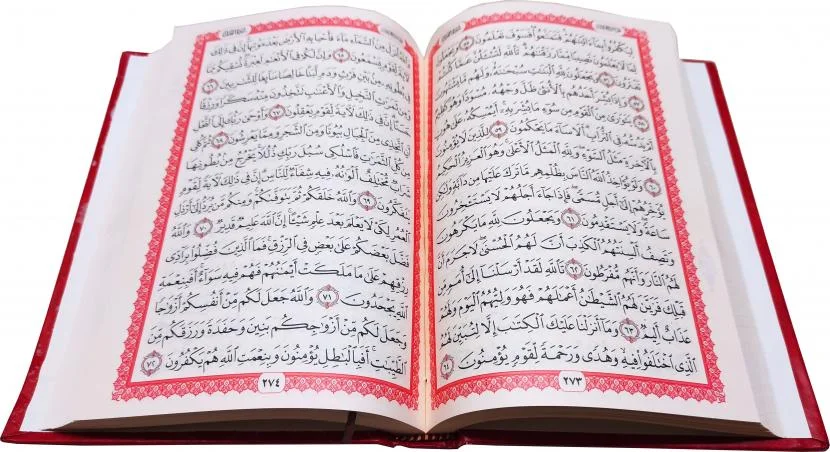 لِيَكْفُرُوا۟ بِمَآ ءَاتَيْنَٰهُمْ فَتَمَتَّعُوا۟ فَسَوْفَ تَعْلَمُونَ ٥٥ وَيَجْعَلُونَ
لِمَا لَا يَعْلَمُونَ نَصِيبًا مِّمَّا رَزَقْنَٰهُمْ تَٱللَّهِ لَتُسْـَٔلُنَّ عَمَّا كُنتُمْ
تَفْتَرُونَ ٥٦ وَيَجْعَلُونَ لِلَّهِ ٱلْبَنَٰتِ سُبْحَٰنَهُۥ وَلَهُم مَّا يَشْتَهُونَ
٥٧ وَإِذَا بُشِّرَ أَحَدُهُم بِٱلْأُنثَىٰ ظَلَّ وَجْهُهُۥ مُسْوَدًّا وَهُوَ كَظِيمٌ
٥٨ يَتَوَٰرَىٰ مِنَ ٱلْقَوْمِ مِن سُوٓءِ مَا بُشِّرَ بِهِۦٓ أَيُمْسِكُهُۥ عَلَىٰ هُونٍ
أَمْ يَدُسُّهُۥ فِى ٱلتُّرَابِ أَلَا سَآءَ مَا يَحْكُمُونَ ٥٩ لِلَّذِينَ لَا يُؤْمِنُونَ
بِٱلْأَخِرَةِ مَثَلُ ٱلسَّوْءِ وَلِلَّهِ ٱلْمَثَلُ ٱلْأَعْلَىٰ وَهُوَ ٱلْعَزِيزُ ٱلْحَكِيمُ
٦٠ وَلَوْ يُؤَاخِذُ ٱللَّهُ ٱلنَّاسَ بِظُلْمِهِم مَّا تَرَكَ عَلَيْهَا مِن دَآبَّةٍ وَلَٰكِن
يُؤَخِّرُهُمْ إِلَىٰٓ أَجَلٍ مُّسَمًّى فَإِذَا جَآءَ أَجَلُهُمْ لَا يَسْتَـْٔخِرُونَ
سَاعَةً وَلَا يَسْتَقْدِمُونَ ٦١ وَيَجْعَلُونَ لِلَّهِ مَا يَكْرَهُونَ
وَتَصِفُ أَلْسِنَتُهُمُ ٱلْكَذِبَ أَنَّ لَهُمُ ٱلْحُسْنَىٰ لَا جَرَمَ أَنَّ
لَهُمُ ٱلنَّارَ وَأَنَّهُم مُّفْرَطُونَ ٦٢ تَٱللَّهِ لَقَدْ أَرْسَلْنَآ إِلَىٰٓ أُمَمٍ مِّن
قَبْلِكَ فَزَيَّنَ لَهُمُ ٱلشَّيْطَٰنُ أَعْمَٰلَهُمْ فَهُوَ وَلِيُّهُمُ ٱلْيَوْمَ وَلَهُمْ
عَذَابٌ أَلِيمٌ ٦٣ وَمَآ أَنزَلْنَا عَلَيْكَ ٱلْكِتَٰبَ إِلَّا لِتُبَيِّنَ لَهُمُ
ٱلَّذِى ٱخْتَلَفُوا۟ فِيهِ وَهُدًى وَرَحْمَةً لِّقَوْمٍ يُؤْمِنُونَ ٦٤
٢٧٣
وَٱللَّهُ أَنزَلَ مِنَ ٱلسَّمَآءِ مَآءً فَأَحْيَا بِهِ ٱلْأَرْضَ بَعْدَ مَوْتِهَآ إِنَّ فِى ذَٰلِكَ
لَءَايَةً لِّقَوْمٍ يَسْمَعُونَ ٦٥ وَإِنَّ لَكُمْ فِى ٱلْأَنْعَٰمِ لَعِبْرَةً نُّسْقِيكُم مِّمَّا
فِى بُطُونِهِۦ مِنۢ بَيْنِ فَرْثٍ وَدَمٍ لَّبَنًا خَالِصًا سَآئِغًا لِّلشَّٰرِبِينَ ٦٦
وَمِن ثَمَرَٰتِ ٱلنَّخِيلِ وَٱلْأَعْنَٰبِ تَتَّخِذُونَ مِنْهُ سَكَرًا وَرِزْقًا
حَسَنًا إِنَّ فِى ذَٰلِكَ لَءَايَةً لِّقَوْمٍ يَعْقِلُونَ ٦٧ وَأَوْحَىٰ رَبُّكَ إِلَى ٱلنَّحْلِ
أَنِ ٱتَّخِذِى مِنَ ٱلْجِبَالِ بُيُوتًا وَمِنَ ٱلشَّجَرِ وَمِمَّا يَعْرِشُونَ ٦٨ ثُمَّ كُلِى
مِن كُلِّ ٱلثَّمَرَٰتِ فَٱسْلُكِى سُبُلَ رَبِّكِ ذُلُلًا يَخْرُجُ مِنۢ بُطُونِهَا
شَرَابٌ مُّخْتَلِفٌ أَلْوَٰنُهُۥ فِيهِ شِفَآءٌ لِّلنَّاسِ إِنَّ فِى ذَٰلِكَ لَءَايَةً لِّقَوْمٍ
يَتَفَكَّرُونَ ٦٩ وَٱللَّهُ خَلَقَكُمْ ثُمَّ يَتَوَفَّىٰكُمْ وَمِنكُم مَّن يُرَدُّ إِلَىٰٓ أَرْذَلِ
ٱلْعُمُرِ لِكَىْ لَا يَعْلَمَ بَعْدَ عِلْمٍ شَيْـًٔا إِنَّ ٱللَّهَ عَلِيمٌ قَدِيرٌ ٧٠ وَٱللَّهُ
فَضَّلَ بَعْضَكُمْ عَلَىٰ بَعْضٍ فِى ٱلرِّزْقِ فَمَا ٱلَّذِينَ فُضِّلُوا۟ بِرَآدِّى
رِزْقِهِمْ عَلَىٰ مَا مَلَكَتْ أَيْمَٰنُهُمْ فَهُمْ فِيهِ سَوَآءٌ أَفَبِنِعْمَةِ
ٱللَّهِ يَجْحَدُونَ ٧١ وَٱللَّهُ جَعَلَ لَكُم مِّنْ أَنفُسِكُمْ أَزْوَٰجًا
وَجَعَلَ لَكُم مِّنْ أَزْوَٰجِكُم بَنِينَ وَحَفَدَةً وَرَزَقَكُم مِّنَ
ٱلطَّيِّبَٰتِ أَفَبِٱلْبَٰطِلِ يُؤْمِنُونَ وَبِنِعْمَتِ ٱللَّهِ هُمْ يَكْفُرُونَ ٧٢
٢٧٤